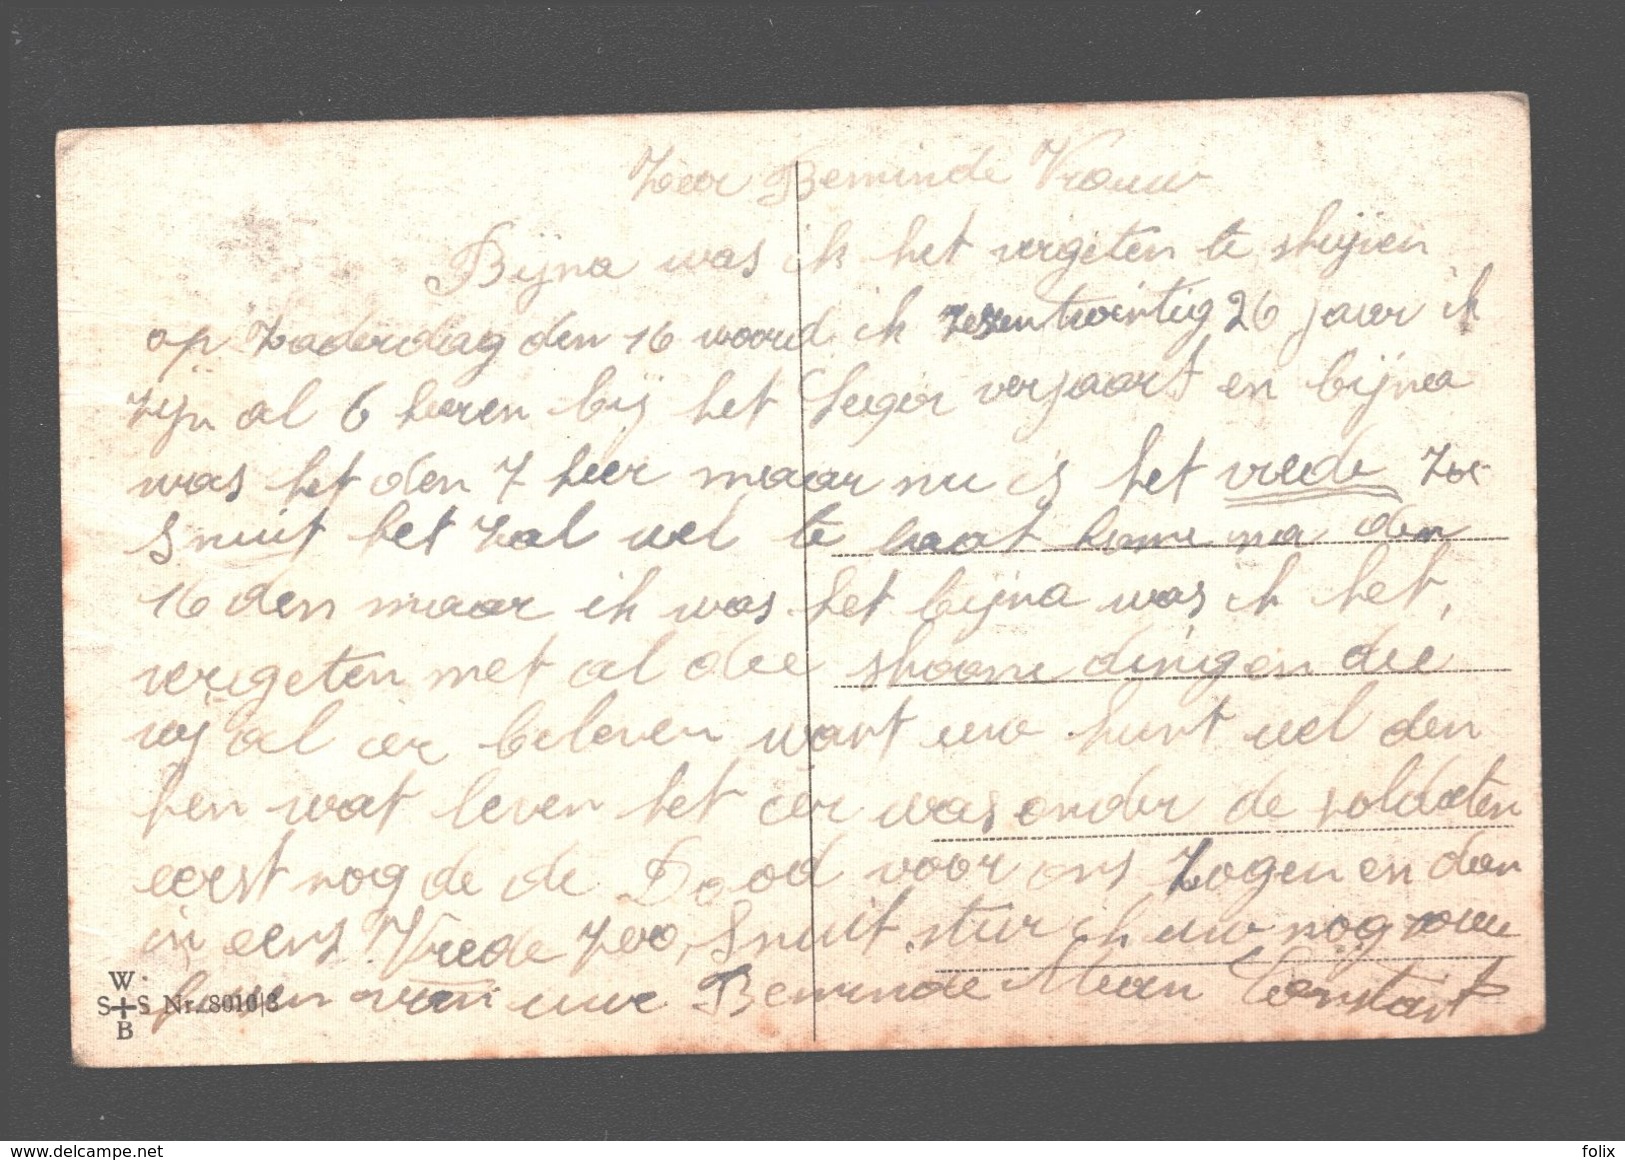 Zeer Beminde Vrouw
Bijna was ik het vergeten te shijven
op Zaderdag den 16 woord ik Zesentwintig 26 jaar ik
zijn al 6 keeren bij het Leger verjaart en bijna
was het den 7 keer maar nu is het vrede zoe
Snuit het zal wel te laat kome na den
16 den maar ik was het bijna was ik het,
vergeten met al die shoone dingen die
wij al er beleven want uw kunt wel den
ken wat leven het er was onder de soldaten
eerst nog de de Dood voor ons Zogen en dan
in eens Vrede zoo, Snuit stur ik uw nog
van uwe Beminde Man Constant
W.
S+S Nr. 8010|3
B
folix